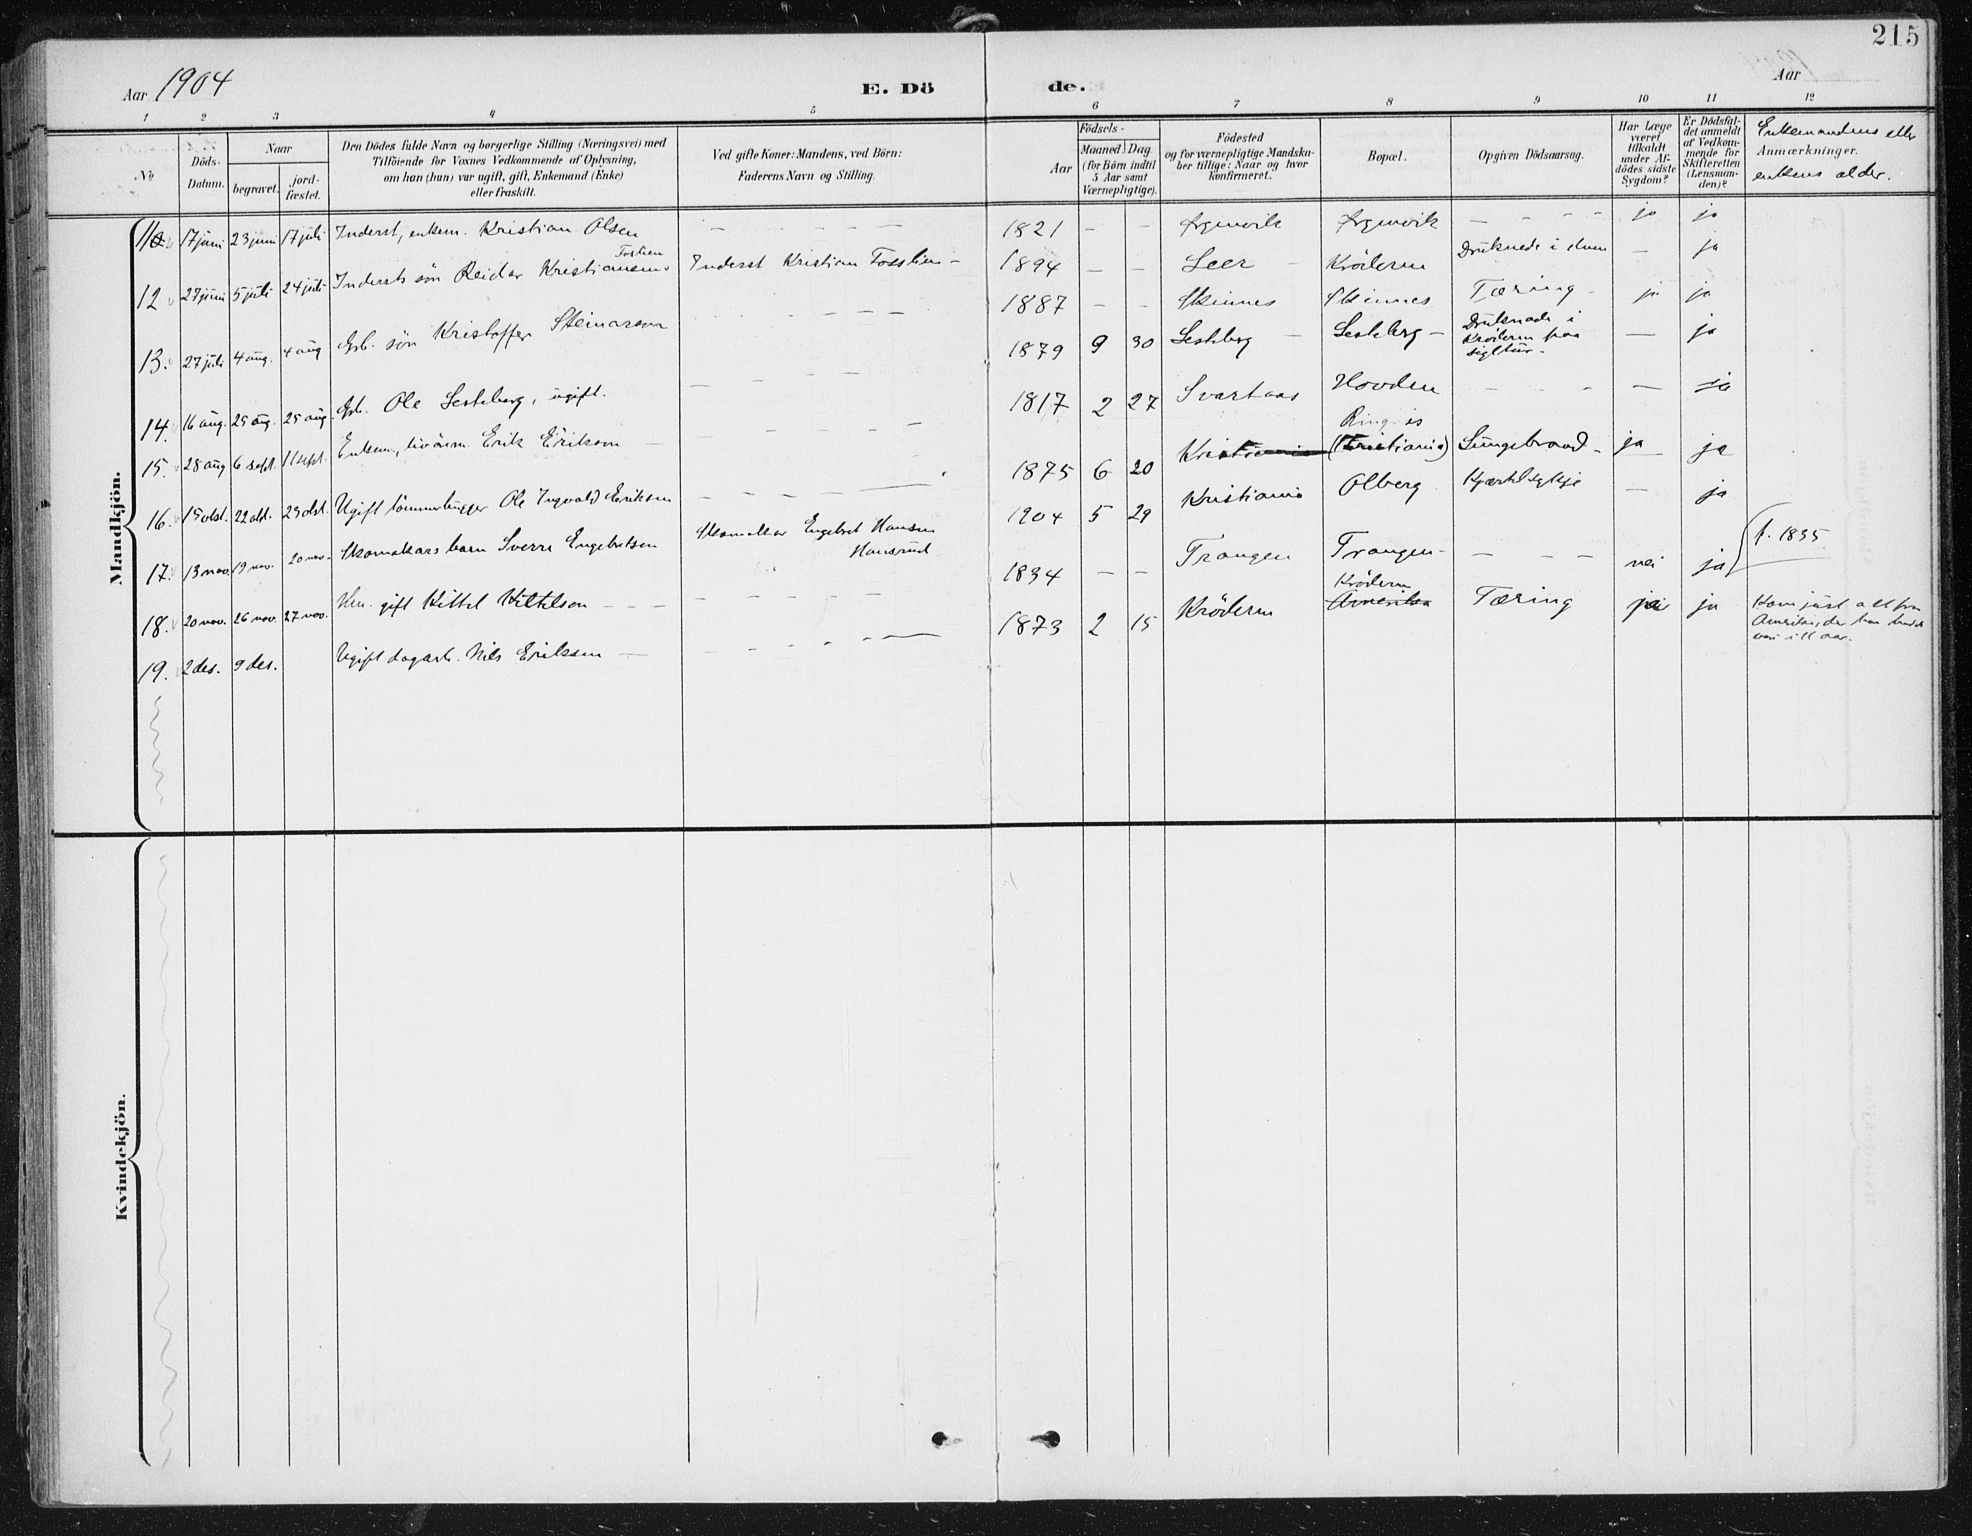 215
Aar 1904
E. Dö
de.
Aar
1 2 3 4 5 6 7 8 9 10 11 12
No
Döds-
Datum.
Naar
begravet.
jord-
fæstet.
Den Dödes fulde Navn og borgerlige Stilling (Næringsvei) med
Tilföiende for Voxnes Vedkommende af Oplysning,
om han (hun) var ugift, gift, Enkemand (Enke)
eller fraskilt.
Ved gifte Koner: Mandens, ved Börn:
Faderens Navn og Stilling.
Födsels-
Aar
Maaned. Dag
(for Börn indtil
5 Aar samt
Værnepligtige).
Födested
og for værnepligtige Mandska-
ber tillige: Naar og hvor
konfirmeret.
Bopæl.
Opgiven Dödsaarsag.
Har Læge
været
tilkaldt
under Af-
dödes sidste
Sygdom?
Er Dödsfal-
det anmeldt
af Vedkom-
mende for
Skifteretten
(Lensman-
den)?
Enkemandens eller
Anmærkninger.
enkens alder.
Mandkjön.
11 17 juni 23 juni 17 juli Inderst, enkem. Kristian Olsen 1821 ja ja
12 27 juni 5 juli 24 juli Indersts sön Reidar Kristiansen Inderst Kristian Fosslien 1894 Leer Kröderen Druknede i elven ja
13. 27 juli 4 aug. 4 aug Gb. sön Kristoffer Steinarson 1887 Skinnes Skinnes Tæring ja ja
14. 16 aug. 25 aug. 25 aug. Gb. Ole Lesteberg, ugift. 1879 9 30 Lesteberg Lesteberg Druknede i
Kröderen paa
sigltur ja
15. 28 aug 6 sept. 11 sept. Enkem., Erik Erikson 1817 2 27 Svartaas Hovden ja
16. 15 okt. 22 okt. 23 okt. Ugift tömmerhugger Ole Ingvald Eriksen 1875 6 20 Kristiania (Kristiania) Lungebrand ja ja
17. 13 nov. 19 nov. 20 nov. Skomakars barn Sverre Engebretsen Skomakar Engebret Hansen
Hansrud 1904 5 29 Kristiania Olberg ja
18. 20 nov. 26 nov. 27 nov. gift Kittel Kittelson 1834 Trangen Trangen nei ja f. 1835
19. 2 des. 9 des. Ugift dagarb. Nils Eriksen 1873 2 15 Kröderen Kröderen
Amerika Tæring ja ja Kom just fra
Amerika, der han hadde
Kvindekjön.